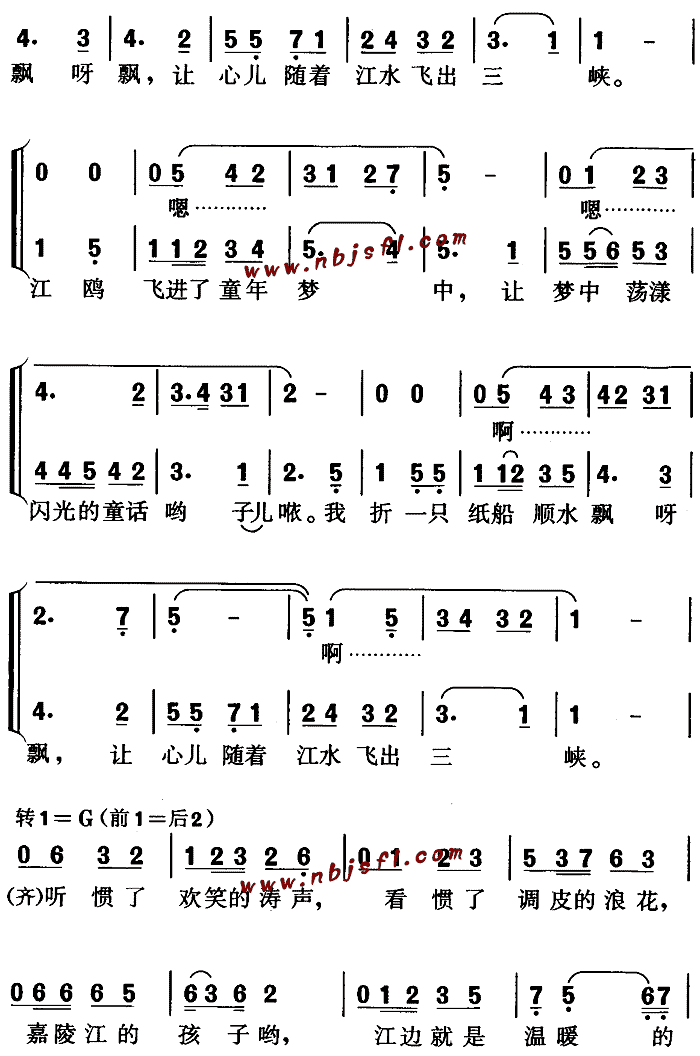 4. 3 | 4. 2 | 5 5 7 1 | 2 4 3 2 | 3. 1 | 1 - |
飘 呀 飘，让 心儿 随着 江水 飞出 三 峡。
0 0 | 0 5 4 2 | 3 1 2 7 | 5 - | 0 1 2 3 |
嗯………… 嗯…………
1 5 | 1 1 2 3 4 | 5. 4 | 5. 1 | 5 5 6 5 3 |
www.nbjsfl.com
江 鸥 飞进了 童年 梦 中，让 梦中 荡漾
4. 2 | 3. 4 3 1 | 2 - | 0 0 | 0 5 4 3 | 4 2 3 1 |
啊…………
4 4 5 4 2 | 3. 1 | 2. 5 | 1 5 5 | 1 1 2 3 5 | 4. 3 |
闪光的童话 哟 子儿 哝。我 折 一只 纸船 顺水 飘 呀
2. 7 | 5 - | 5 1 5 | 3 4 3 2 | 1 - |
啊…………
4. 2 | 5 5 7 1 | 2 4 3 2 | 3. 1 | 1 - |
飘，让 心儿 随着 江水 飞出 三 峡。
转1=G（前1=后2）
0 6 3 2 | 1 2 3 2 6 | 0 1 2 3 | 5 3 7 6 3 |
www.nbjsfl.com
(齐)听 惯了 欢笑的涛声， 看 惯了 调皮的浪花，
0 6 6 6 5 | 6 3 6 2 | 0 1 2 3 5 | 7 5 6 7 |
嘉陵江的 孩子哟， 江边就是 温暖 的